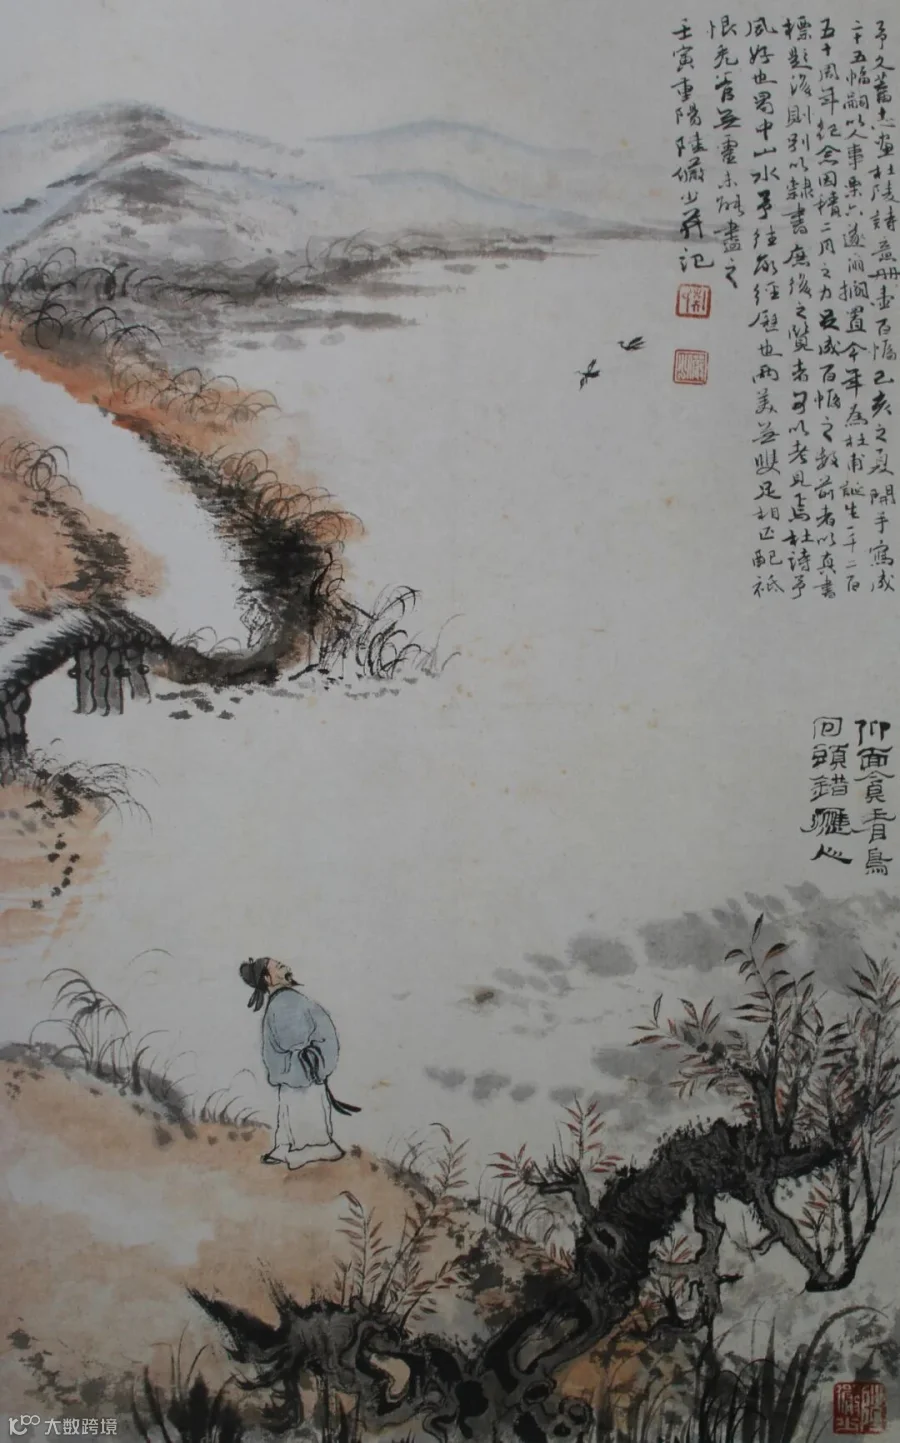 予久蓄志畫杜陵詩意冊盡百幅己亥之夏開手寫成
二十五幅嗣以人事栗六遂爾擱置今年為杜甫誕生一千二百
五十周年紀念因積二月之力足成百幅之數前者以真書
標題後則別以隸書庶後之覽者可以考見焉杜詩予
夙好也蜀中山水予往經歷也兩美並雙足相匹配祇
恨禿管無靈未能盡之
壬寅重陽陸儼少並記
仰面貪看鳥
回頭錯應人
大数跨境